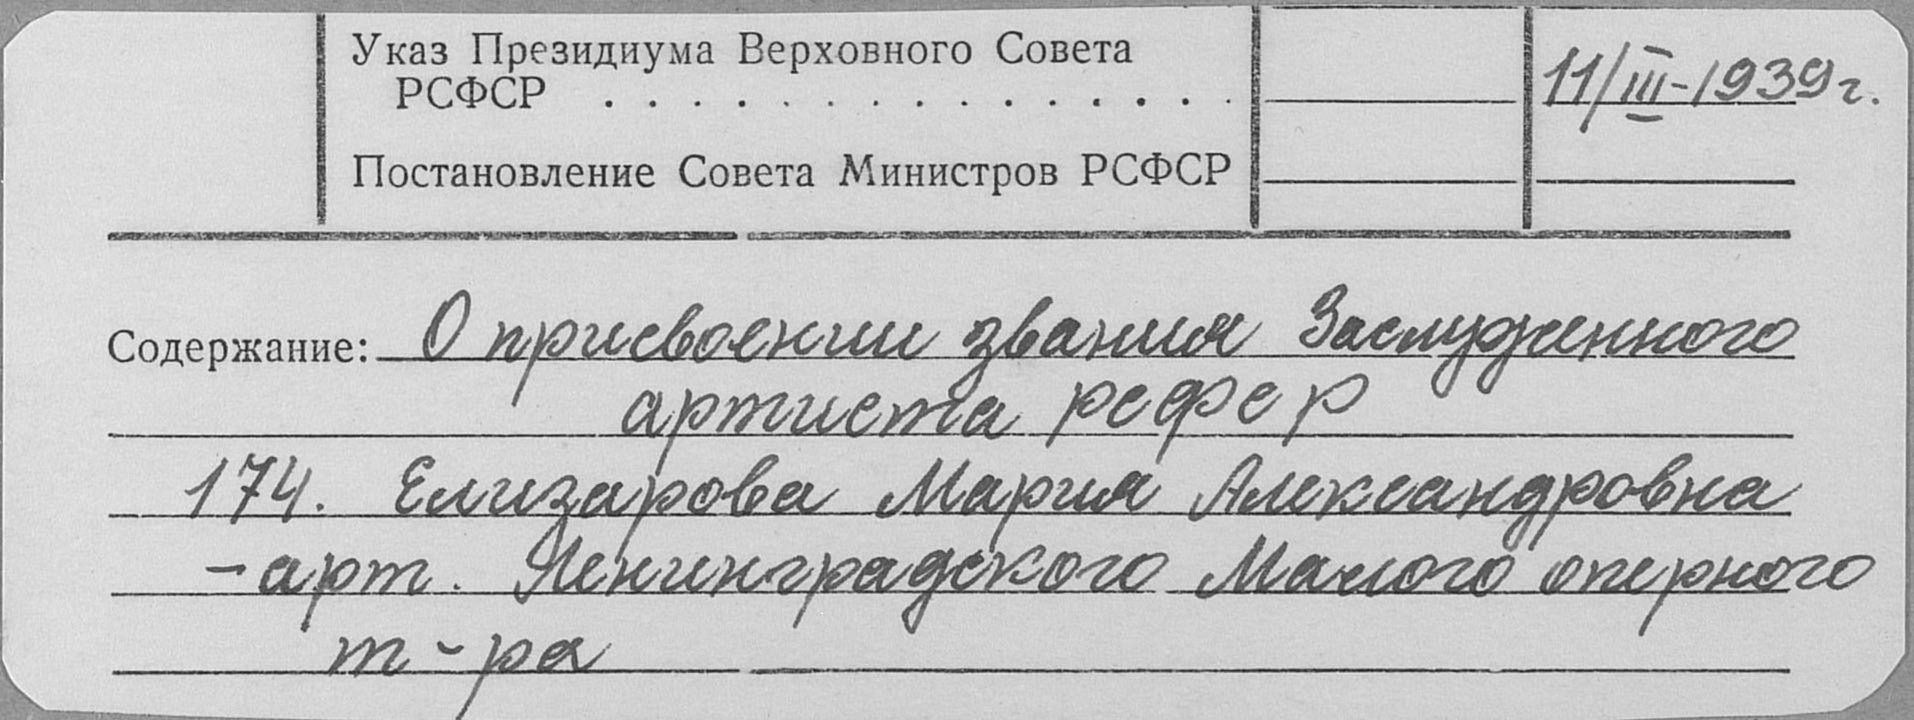 Указ Президиума Верховного Совета
РСФСР . . . . . . . . . . . . . . . 11/III-1939г.
Постановление Совета Министров РСФСР
Содержание: О присвоении звания Заслуженного
артиста РСФСР
174. Елизарова Мария Александровна
- арт. Ленинградского Малого оперного
т-ра